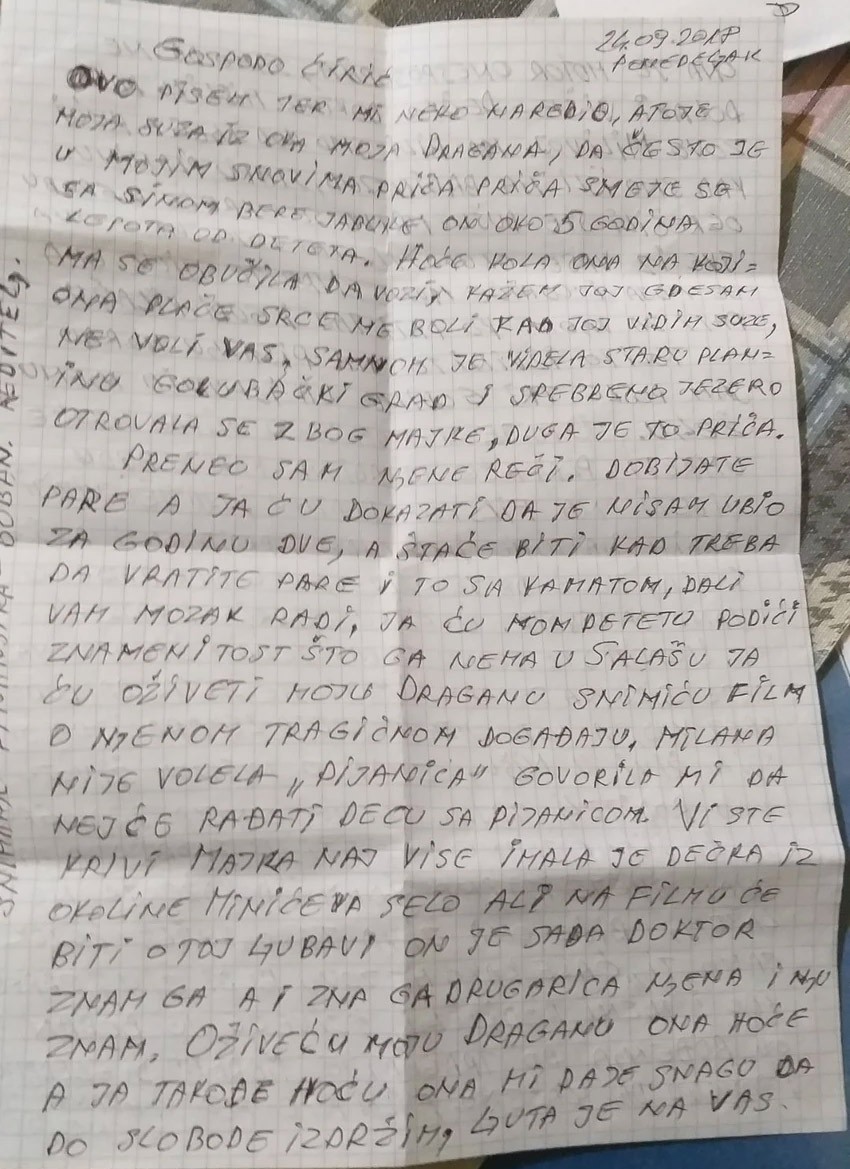 24.09.2018
PONEDELJAK
GOSPODO ĆIRIĆ
OVO PIŠEM JER MI NEKO NAREDIO, A TO JE
MOJA SUZA IZ OKA MOJA DRAGANA, DA ČESTO JE
U MOJIM SNOVIMA PRIČA PRIČA SMEJE SE
SA SINOM BERE JABUKE ON OKO 5 GODINA
LEPOTA OD DETETA. HOĆE KOLA ONA NA KOJI=
MA SE OBUČILA DA VOZI, KAŽEM JOJ GDESAM
ONA PLAČE SRCE ME BOLI KAD JOJ VIDIM SUZE,
NE VOLI VAS, SAMNOM JE VIDELA STARU PLAN=
INU GOLUBAČKI GRAD I SREBRENO JEZERO
OTROVALA SE ZBOG MAJKE, DUGA JE TO PRIČA.
PRENEO SAM NJENE REČI. DOBIJATE
PARE A JA ĆU DOKAZATI DA JE NISAM UBIO
ZA GODINU DVE, A ŠTAĆE BITI KAD TREBA
DA VRATITE PARE I TO SA KAMATOM, DALI
VAM MOZAK RADI, JA ĆU MOM DETETU PODIĆI
ZNAMENITOST ŠTO GA NEMA U SALAŠU JA
ĆU OŽIVETI MOJU DRAGANU SNIMIĆU FILM
O NJENOM TRAGIČNOM DOGAĐAJU, MILANA
NIJE VOLELA „PIJANICA" GOVORILA MI DA
NEJĆE RAĐATI DECU SA PIJANICOM. VI STE
KRIVI MAJKA NAJ VIŠE IMALA JE DEČKA IZ
OKOLINE MINIĆEVA SELO ALI NA FILMU ĆE
BITI O TOJ LJUBAVI ON JE SADA DOKTOR
ZNAM GA A I ZNA GA DRUGARICA NJENA I NJU
ZNAM, OŽIVEĆU MOJU DRAGANU ONA HOĆE
A JA TAKOĐE HOĆU ONA MI DAJE SNAGU DA
DO SLOBODE IZDRŽIM, LJUTA JE NA VAS.